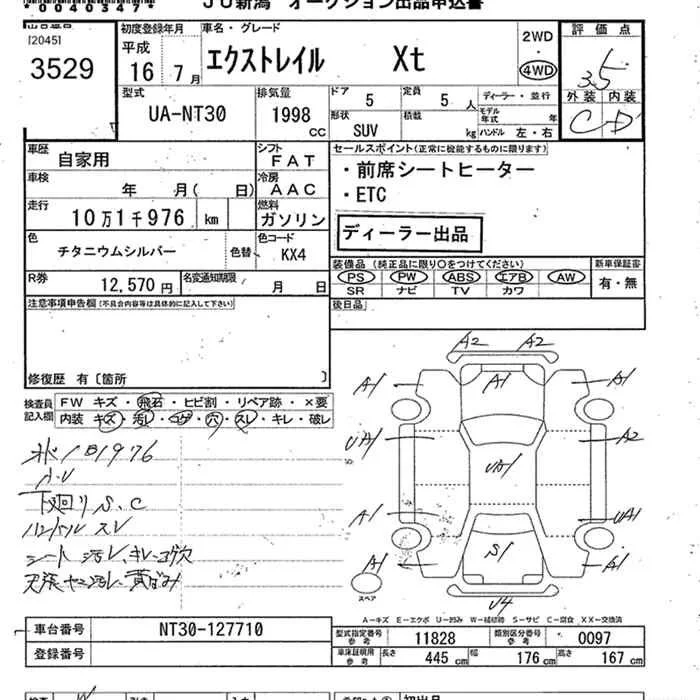 *0040347*
JU新潟 オークション出品申込書
出品番号
[2045]
3529
初度登録年月
平成
16年7月
車名・グレード
エクストレイル Xt
2WD
・
4WD
評価点
3.5
外装 内装
C D
型式
UA-NT30
排気量
1998 CC
ドア 5
定員 5人
形状 SUV
積載 kg
ディーラー・並行
モデル年式 年
ハンドル 左・右
車歴
自家用
シフト
FAT
車検
年 月( 日)
冷房
AAC
走行
10万1千976 km
燃料
ガソリン
色
チタニウムシルバー
色替
色コード
KX4
R券
12,570円
名変通知期限
月 日
セールスポイント(正常に機能するものに限ります)
・前席シートヒーター
・ETC
ディーラー出品
装備品 (純正品に限り○をつけてください)
PS PW ABS エアB AW
SR ナビ TV カワ
新車保証書
有・無
注意事項申告欄(不具合内容等は具体的に記入して下さい)
後日品
修復歴 有〔箇所 〕
検査員記入欄
FW キズ・飛石・ヒビ割・リペア跡・×要
内装 キズ・汚レ・コゲ・穴・スレ・キレ・破レ
下廻り S.C
ハンドル スレ
シート 汚レ、キレ・コゲ穴
A2 A2
A1 A1 A1
UA1 UA1 A2
A1 UA1
A1 S1 A1
U4
スペア
A-キズ E-エクボ U-凹み W-補修跡 S-サビ C-腐食 XX-交換済
車台番号
NT30-127710
登録番号
型式指定番号 参考
11828
類別区分番号 参考
0097
車庫証明用 参考
長さ 445cm
幅 176cm
高さ 167cm